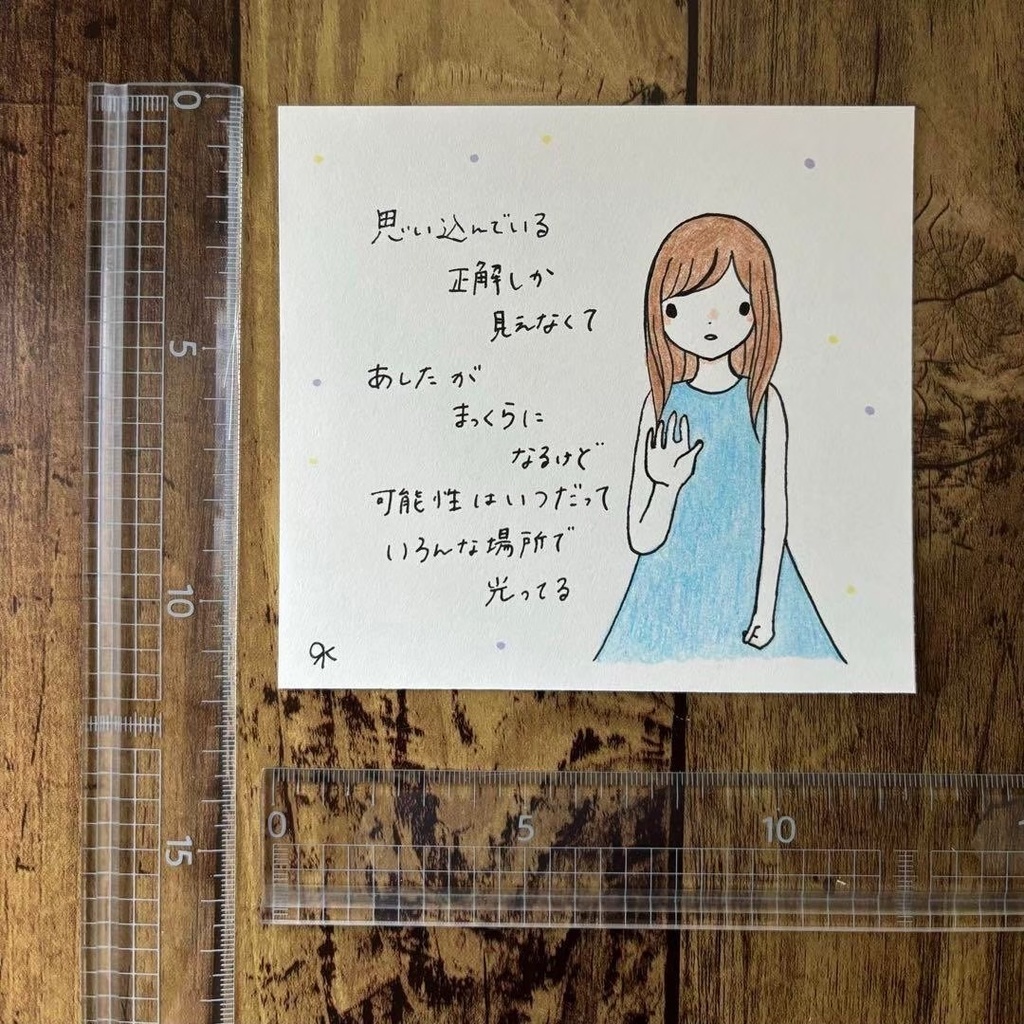 思い込んでいる
正解しか
見えなくて
あしたが
まっくらに
なるけど
可能性はいつだって
いろんな場所で
光ってる
0
5
10
15
0
5
10